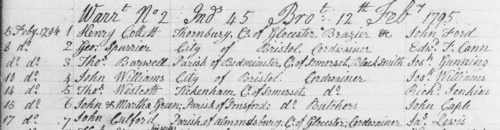 Warrt No 2 Ind 45 Brot 12th Feby 1795
5 Feby 1794 1 Henry Collett Thornbury, Co of Glocester Brazier &c John Ford
8 do 2 Geo: Spurrier City of Bristol Cordwainer Edwd T. Cann
do do 3 Thos Barwell Parish of Bedminster, Co of Somerset, Black Smith Jos: Gunning
10 do 4 John Williams City of Bristol. Cordwainer Jos: Williams
14 do 5 Thos Westcott Tickenham, Co of Somerset do Richd Jenkins
15 do 6 John & Martha Green; Parish of do Butchers John Caple
17 do 7 John Parish of Almondsbury, Co of Glocester; Cordwainer Jas: Lewis